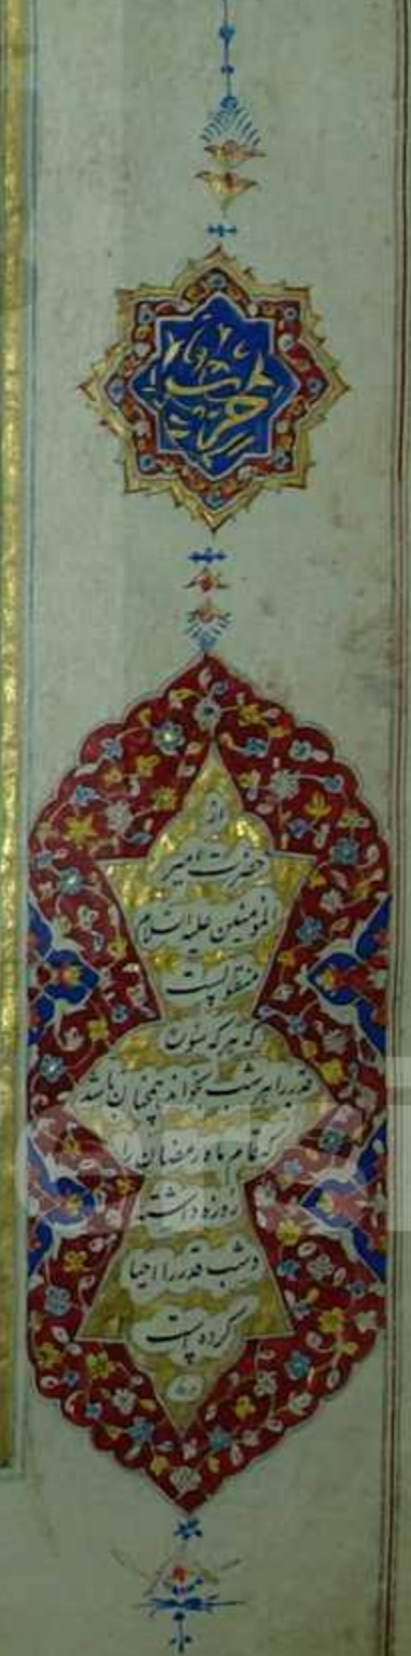 هر شب
از
حضرت امیر
المؤمنین علیه السلام
منقولست
که هر که سوره
قدر را هر شب بخواند همچنان باشد
که تمام ماه رمضان را
روزه داشته
و شب قدر را احیا
کرده است